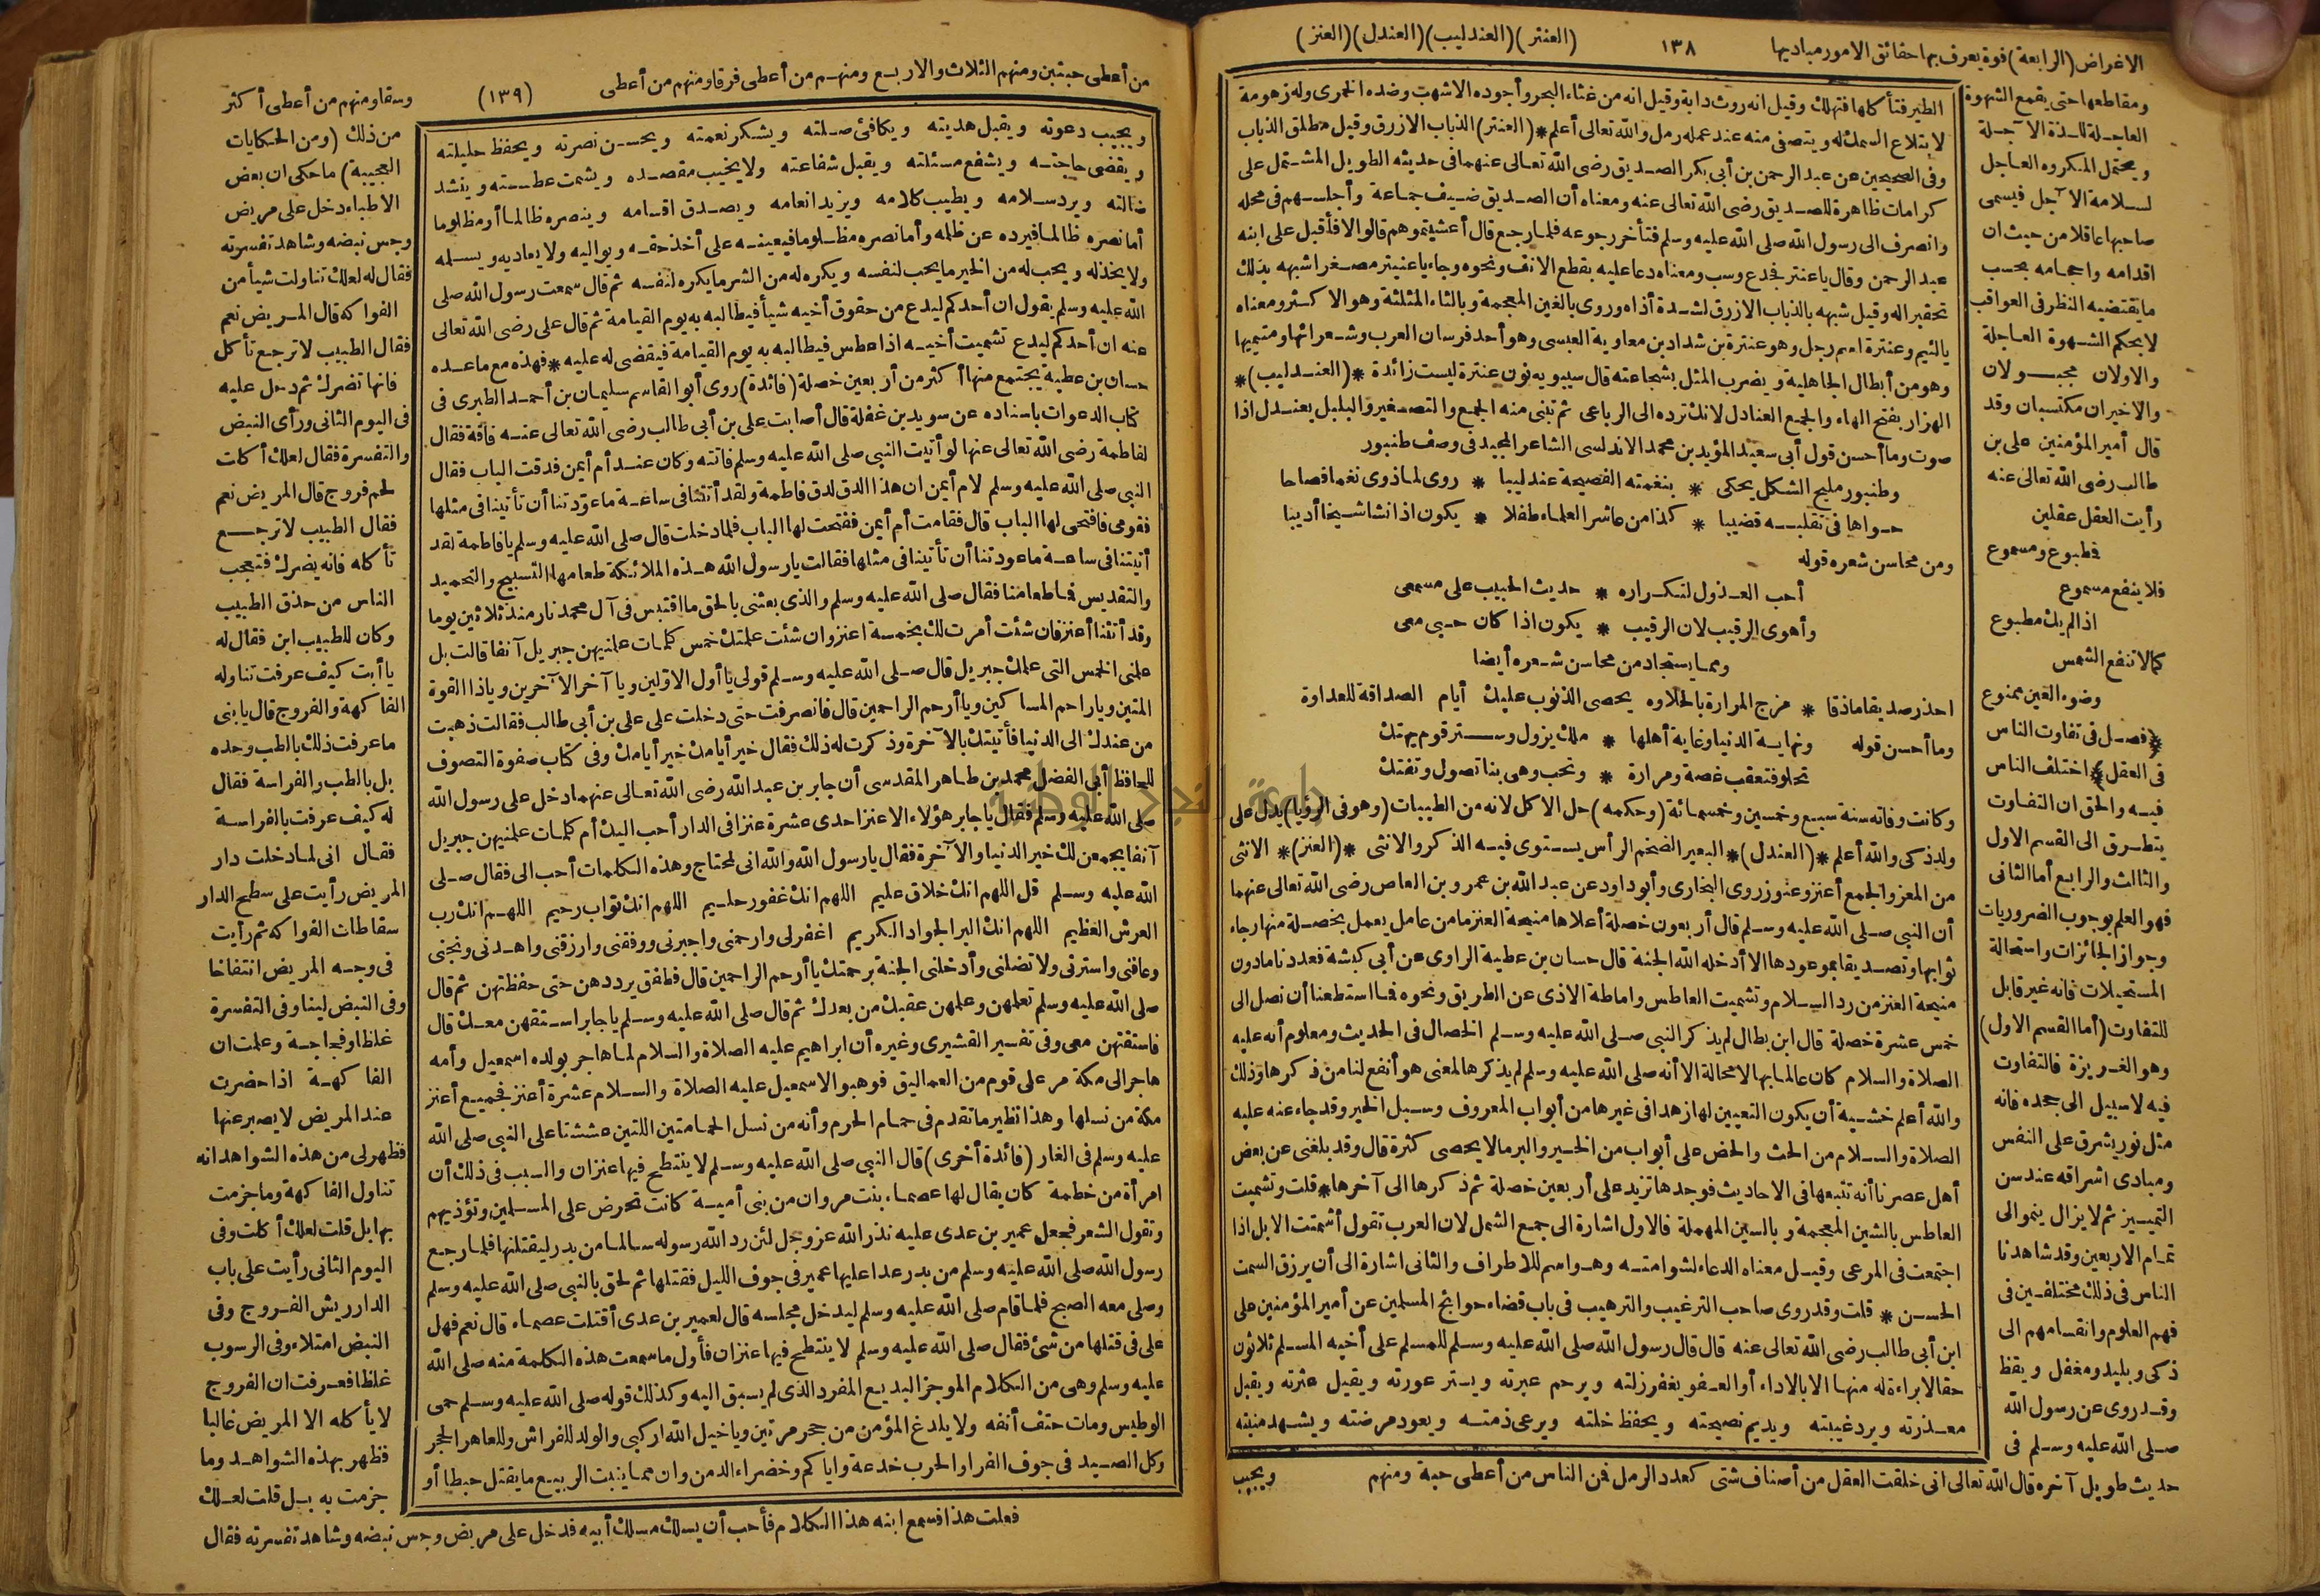 (العنتر) (العندليب) (العندل) (العنز)
١٣٨
الاغراض (الرابعة) قوة يعرف بها حقائق الامور مباديها
ومقاطعها حتى يقمع الشهوة
العاجلة للذة الآجلة
ويحتمل المكروه العاجل
لسلامة الآجل فيسمى
صاحبها عاقلا من حيث ان
اقدامه واحجامه بحسب
ما يقتضيه النظر فى العواقب
لا بحكم الشهوة العاجلة
والاولان مجبولان
والاخيران مكتسبان وقد
قال أمير المؤمنين على بن
طالب رضى الله تعالى عنه
رأيت العقل عقلين
فطبوع ومسموع
فلا ينفع مسموع
اذا لم يك مطبوع
كما لا تنفع الشمس
وضوء العين ممنوع
(فصل فى تفاوت الناس
فى العقل) اختلف الناس
فيه والحق ان التفاوت
يتطرق الى القسم الاول
والثالث والرابع أما الثانى
فهو العلم بوجوب الضروريات
وجواز الجائزات واستحالة
المستحيلات فانه غير قابل
للتفاوت (أما القسم الاول)
وهو الغريزة فالتفاوت
فيه لا سبيل الى جحده فانه
مثل نور يشرق على النفس
ومبادى اشراقه عند سن
التمييز ثم لا يزال ينمو الى
تمام الاربعين وقد شاهدنا
الناس فى ذلك مختلفين فى
فهم العلوم وانقسامهم الى
ذكى وبليد ومغفل ويقظ
وقد روى عن رسول الله
صلى الله عليه وسلم فى
حديث طويل آخره قال الله تعالى انى خلقت العقل من أصناف شتى كعدد الرمل فمن الناس من أعطى حبة ومنهم
الطير فتأكلها فتهلك وقيل انه روث دابة وقيل انه من غثاء البحر وأجوده الاشهب وضده الخمرى وله زهومة
لابتلاع السمك له ويتصفى منه عند عمله رمل والله تعالى أعلم * (العنتر) الذباب الازرق وقيل مطلق الذباب
وفى الصحيحين عن عبد الرحمن بن أبى بكر الصديق رضى الله تعالى عنهما فى حديثه الطويل المشتمل على
كرامات ظاهرة للصديق رضى الله تعالى عنه ومعناه أن الصديق ضيف جماعة وأجلسهم فى محله
وانصرف الى رسول الله صلى الله عليه وسلم فتأخر رجوعه فلما رجع قال أعشيتموهم قالوا لا فأقبل على ابنه
عبد الرحمن وقال يا عنتر فجدع وسب ومعناه دعا عليه بقطع الانف ونحوه وجاء يا عنيتر مصغرا شبهه بذلك
تحقيرا له وقيل شبهه بالذباب الازرق لشدة أذاه وروى بالغين المعجمة وبالثاء المثلثة وهو الاكثر ومعناه
يا لئيم وعنترة اسم رجل وهو عنترة بن شداد بن معاوية العبسى وهو أحد فرسان العرب وشعرائها ومتيميها
وهو من أبطال الجاهلية ويضرب المثل بشجاعته قال سيبويه نون عنترة ليست زائدة * (العندليب) *
الهزار بفتح الهاء والجمع العنادل لانك ترده الى الرباعى ثم تبنى منه الجمع والتصغير والبلبل يعندل اذا
صوت وما أحسن قول أبى سعيد المؤيد بن محمد الاندلسى الشاعر المجيد فى وصف طنبور
وطنبور مليح الشكل يحكى * بنغمته الفصيحة عندليبا * روى لما ذوى نغما فصاحا
حواها فى تقلبه قضيبا * كذا من عاشر العلماء طفلا * يكون اذا نشا شيخا أديبا
ومن محاسن شعره قوله
أحب العذول لتكراره * حديث الحبيب على مسمعى
وأهوى الرقيب لان الرقيب * يكون اذا كان حبى معى
ومما يستجاد من محاسن شعره أيضا
احذر صديقا ماذقا * مزج المرارة بالحلاوه يحصى الذنوب عليك أيام الصداقة للعداوة
وما أحسن قوله ونهاية الدنيا وغاية أهلها * ملك يزول وستر قوم يهتك
تحلو فتعقب غصة ومرارة * ونحب وهى بنا تصول وتفتك
وكانت وفاته سنة سبع وخمسين وخمسمائة (وحكمه) حل الاكل لانه من الطيبات (وهو فى الرؤيا) يدل على
ولد ذكى والله أعلم * (العندل) * البعير الضخم الرأس يستوى فيه الذكر والانثى * (العنز) * الانثى
من المعز والجمع أعنز وعنوز روى البخارى وأبو داود عن عبد الله بن عمرو بن العاص رضى الله تعالى عنهما
أن النبى صلى الله عليه وسلم قال أربعون خصلة أعلاها منيحة العنز ما من عامل يعمل بخصلة منها رجاء
ثوابها وتصديقا بموعودها الا أدخله الله الجنة قال حسان بن عطية الراوى عن أبى كبشة فعددنا مادون
منيحة العنز من رد السلام وتشميت العاطس واماطة الاذى عن الطريق ونحوه فما استطعنا أن نصل الى
خمس عشرة خصلة قال ابن بطال لم يذكر النبى صلى الله عليه وسلم الخصال فى الحديث ومعلوم أنه عليه
الصلاة والسلام كان عالما بها لا محالة الا أنه صلى الله عليه وسلم لم يذكرها لمعنى هو أنفع لنا من ذكرها وذلك
والله أعلم خشية أن يكون التعيين لها زهدا فى غيرها من أبواب المعروف وسبل الخير وقد جاء عنه عليه
الصلاة والسلام من الحث والحض على أبواب من الخير والبر مالا يحصى كثرة قال وقد بلغنى عن بعض
أهل عصرنا أنه تتبعها فى الاحاديث فوجدها تزيد على أربعين خصلة ثم ذكرها الى آخرها * قلت وتشميت
العاطس بالشين المعجمة وبالسين المهملة فالاول اشارة الى جمع الشمل لان العرب تقول أشمتت الابل اذا
اجتمعت فى المرعى وقيل معناه الدعاء لشوامته وهو اسم للاطراف والثانى اشارة الى أن يرزق السمت
الحسن * قلت وقد روى صاحب الترغيب والترهيب فى باب قضاء حوائج المسلمين عن أمير المؤمنين على
ابن أبى طالب رضى الله تعالى عنه قال قال رسول الله صلى الله عليه وسلم للمسلم على أخيه المسلم ثلاثون
حقا لا براءة له منها الا بالاداء أو العفو يغفر زلته ويرحم عبرته ويستر عورته ويقيل عثرته ويقبل
معذرته ويرد غيبته ويديم نصيحته ويحفظ خلته ويرعى ذمته ويعود مرضته ويشهد ميتته
ويجيب
من أعطى حبتين ومنهم الثلاث والاربع ومنهم من أعطى فرقا ومنهم من أعطى
(١٣٩)
ويجيب دعوته ويقبل هديته ويكافئ صلته ويشكر نعمته ويحسن نصرته ويحفظ حليلته
ويقضى حاجته ويشفع مسئلته ويقبل شفاعته ولا يخيب مقصده ويشمت عطسته وينشد
ضالته ويرد سلامه ويطيب كلامه ويزيد انعامه ويصدق اقسامه وينصره ظالما أو مظلوما
أما نصره ظالما فيرده عن ظلمه وأما نصره مظلوما فيعينه على أخذ حقه ويواليه ولا يعاديه ويسلمه
ولا يخذله ويحب له من الخير ما يحب لنفسه ويكره له من الشر ما يكره لنفسه ثم قال سمعت رسول الله صلى
الله عليه وسلم يقول ان أحدكم ليدع من حقوق أخيه شيأ فيطالبه به يوم القيامة ثم قال على رضى الله تعالى
عنه ان أحدكم ليدع تشميت أخيه اذا عطس فيطالبه به يوم القيامة فيقضى له عليه * فهذه مع ما عده
حسان بن عطية يجتمع منها أكثر من أربعين خصلة (فائدة) روى أبو القاسم سليمان بن أحمد الطبرى فى
كتاب الدعوات باسناده عن سويد بن غفلة قال أصابت على بن أبى طالب رضى الله تعالى عنه فاقة فقال
لفاطمة رضى الله تعالى عنها لو أتيت النبى صلى الله عليه وسلم فاتته وكان عند أم أيمن فدقت الباب فقال
النبى صلى الله عليه وسلم لام أيمن ان هذا الدق لدق فاطمة ولقد أتتنا فى ساعة ما عودتنا أن تأتينا فى مثلها
فقومى فافتحى لها الباب قال فقامت أم أيمن ففتحت لها الباب فلما دخلت قال صلى الله عليه وسلم يا فاطمة لقد
أتيتنا فى ساعة ما عودتنا أن تأتينا فى مثلها فقالت يا رسول الله هذه الملائكة طعامها التسبيح والتحميد
والتقديس فما طعامنا فقال صلى الله عليه وسلم والذى بعثنى بالحق ما اقتبس فى آل محمد نار منذ ثلاثين يوما
وقد أتتنا أعنز فان شئت أمرت لك بخمسة اعنز وان شئت علمتك خمس كلمات علمنيهن جبريل آنفا قالت بل
علمنى الخمس التى علمك جبريل قال صلى الله عليه وسلم قولى يا أول الاولين ويا آخر الآخرين وياذا القوة
المتين ويا راحم المساكين ويا أرحم الراحمين قال فانصرفت حتى دخلت على على بن أبى طالب فقالت ذهبت
من عندك الى الدنيا فأتيتك بالآخرة وذكرت له ذلك فقال خير أيامك خير أيامك وفى كتاب صفوة التصوف
للحافظ أبى الفضل محمد بن طاهر المقدسى أن جابر بن عبد الله رضى الله تعالى عنهما دخل على رسول الله
صلى الله عليه وسلم فقال يا جابر هؤلاء الاعنز احدى عشرة عنزا فى الدار أحب اليك أم كلمات علمنيهن جبريل
آنفا يجمعن لك خير الدنيا والآخرة فقال يا رسول الله والله انى لمحتاج وهذه الكلمات أحب الى فقال صلى
الله عليه وسلم قل اللهم انك خلاق عليم اللهم انك غفور حليم اللهم انك تواب رحيم اللهم انك رب
العرش العظيم اللهم انك البر الجواد الكريم اغفر لى وارحمنى واجبرنى ووفقنى وارزقنى واهدنى ونجنى
وعافنى واسترنى ولا تضلنى وأدخلنى الجنة برحمتك يا أرحم الراحمين قال فطفق يرددهن حتى حفظتهن ثم قال
صلى الله عليه وسلم تعلمهن وعلمهن عقبك من بعدك ثم قال صلى الله عليه وسلم يا جابر استقهن معك قال
فاستقتهن معى وفى تفسير القشيرى وغيره أن ابراهيم عليه الصلاة والسلام لما هاجر بولده اسمعيل وأمه
هاجر الى مكة مر على قوم من العماليق فوهبوا لاسمعيل عليه الصلاة والسلام عشرة أعنز فجميع أعنز
مكة من نسلها وهذا نظير ما تقدم فى حمام الحرم وأنه من نسل الحمامتين اللتين عششتا على النبى صلى الله
عليه وسلم فى الغار (فائدة أخرى) قال النبى صلى الله عليه وسلم لا ينتطح فيها عنزان والسبب فى ذلك أن
امرأة من خطمة كان يقال لها عصماء بنت مروان من بنى أمية كانت تحرض على المسلمين وتؤذيهم
وتقول الشعر فجعل عمير بن عدى عليه نذر الله عز وجل لئن رد الله رسوله سالما من بدر ليقتلنها فلما رجع
رسول الله صلى الله عليه وسلم من بدر عدا عليها عمير فى جوف الليل فقتلها ثم لحق بالنبى صلى الله عليه وسلم
وصلى معه الصبح فلما قام صلى الله عليه وسلم ليدخل مجلسه قال لعمير بن عدى أقتلت عصماء قال نعم فهل
على فى قتلها من شئ فقال صلى الله عليه وسلم لا ينتطح فيها عنزان فأول ما سمعت هذه الكلمة منه صلى الله
عليه وسلم وهى من الكلام الموجز البديع المفرد الذى لم يسبق اليه وكذلك قوله صلى الله عليه وسلم حمى
الوطيس ومات حتف أنفه ولا يلدغ المؤمن من جحر مرتين ويا خيل الله اركبى والولد للفراش وللعاهر الحجر
وكل الصيد فى جوف الفرا والحرب خدعة واياكم وخضراء الدمن وان مما ينبت الربيع ما يقتل حبطا أو
وسقا ومنهم من أعطى أكثر
من ذلك (ومن الحكايات
العجيبة) ما حكى ان بعض
الاطباء دخل على مريض
وجس نبضه وشاهد تفسرته
فقال له لعلك تناولت شيأ من
الفواكه قال المريض نعم
فقال الطبيب لا ترجع تأكل
فانها تضرك ثم دخل عليه
فى اليوم الثانى ورأى النبض
والتفسرة فقال لعلك أكلت
لحم فروج قال المريض نعم
فقال الطبيب لا ترجع
تأكله فانه يضرك فتعجب
الناس من حذق الطبيب
وكان للطبيب ابن فقال له
يا أبت كيف عرفت تناوله
الفاكهة والفروج قال يا بنى
ما عرفت ذلك بالطب وحده
بل بالطب والفراسة فقال
له كيف عرفت بالفراسة
فقال انى لما دخلت دار
المريض رأيت على سطح الدار
سقاطات الفواكه ثم رأيت
فى وجه المريض انتفاخا
وفى النبض لينا وفى التفسرة
غلظا وفجاجة وعلمت ان
الفاكهة اذا حضرت
عند المريض لا يصبر عنها
فظهر لى من هذه الشواهد انه
تناول الفاكهة وما جزمت
بها بل قلت لعلك أكلت وفى
اليوم الثانى رأيت على باب
الدار ريش الفروج وفى
النبض امتلاء وفى الرسوب
غلظا فعرفت ان الفروج
لا يأكله الا المريض غالبا
فظهر بهذه الشواهد وما
جزمت به بل قلت لعلك
فعلت هذا فسمع ابنه هذا الكلام فأحب أن يسلك مسلك أبيه فدخل على مريض وجس نبضه وشاهد تفسرته فقال